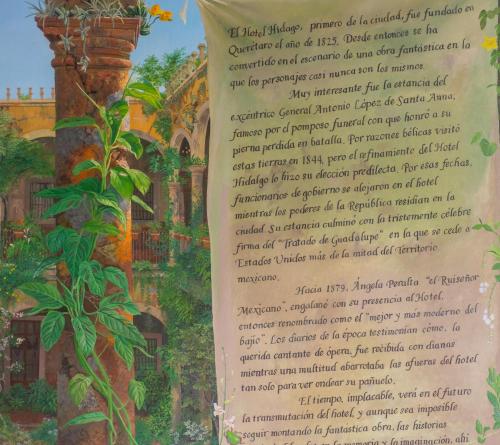 El Hotel Hidago, primero de la ciudad, fue fundado en
Querétaro el año de 1825. Desde entonces se ha
convertido en el escenario de una obra fantástica en la
que los personajes casi nunca son los mismos.
Muy interesante fue la estancia del
excéntrico General Antonio López de Santa Anna,
famoso por el pomposo funeral con que honró a su
pierna perdida en batalla. Por razones bélicas visitó
estas tierras en 1844, pero el refinamiento del Hotel
Hidalgo lo hizo su elección predilecta. Por esas fechas,
funcionarios de gobierno se alojaron en el hotel
mientras los poderes de la República residían en la
ciudad. Su estancia culminó con la tristemente célebre
firma del "Tratado de Guadalupe" en la que se cede a
Estados Unidos más de la mitad del Territorio
mexicano.
Hacia 1879, Ángela Peralta "el Ruiseñor
Mexicano", engalanó con su presencia al Hotel,
entonces renombrado como el "mejor y más moderno del
bajío". Los diarios de la época testimonían cómo, la
querida cantante de ópera, fue recibida con dianas
mientras una multitud abarrotaba las afueras del hotel
tan solo para ver ondear su pañuelo.
El tiempo, implacable, verá en el futuro
la transmutación del hotel, y aunque sea imposible
seguir montando la fantástica obra, las historias
la memoria y la imaginación, ahí